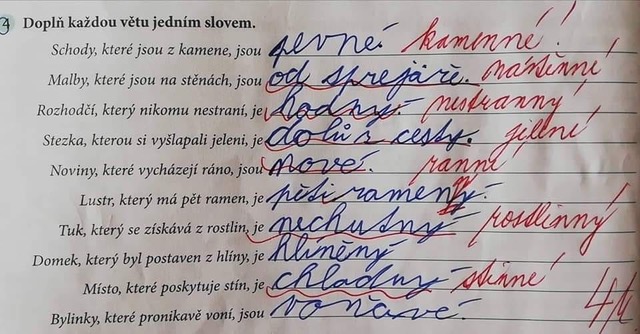 4 Doplň každou větu jedním slovem.
Schody, které jsou z kamene, jsou pevné. kamenné!
Malby, které jsou na stěnách, jsou od sprejáře. nástěnné
Rozhodčí, který nikomu nestraní, je hodný. nestranný
Stezka, kterou si vyšlapali jeleni, je dolů z cesty. jelení
Noviny, které vycházejí ráno, jsou nové. ranní
Lustr, který má pět ramen, je pěti ramený.
Tuk, který se získává z rostlin, je nechutný rostlinný
Domek, který byl postaven z hlíny, je hliněný
Místo, které poskytuje stín, je chladný stinné
Bylinky, které pronikavě voní, jsou voňavé.